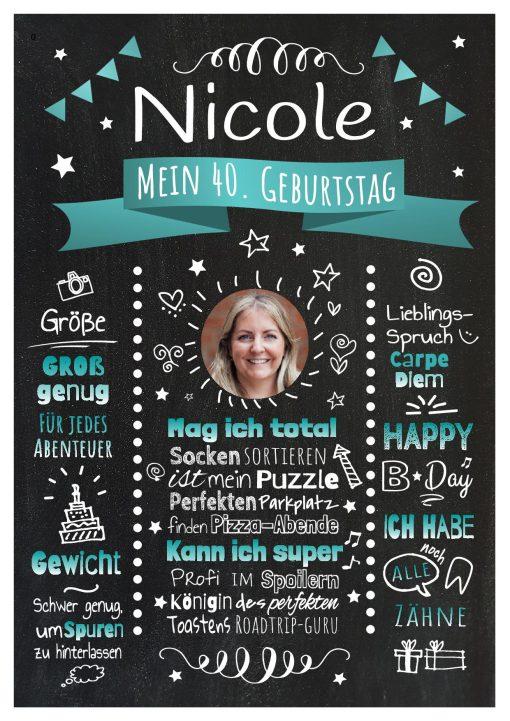 Nicole
Mein 40. Geburtstag
Größe
GROß
genug
FÜR JEDES
ABENTEUER
Gewicht
Schwer genug,
um Spuren
zu hinterlassen
Mag ich total
Socken SORTIEREN
ist mein Puzzle
Perfekten Parkplatz
finden Pizza-Abende
Kann ich super
PROFI IM Spoilern
Königin des perfekten
Toastens ROADTRIP-GURU
Lieblings-
Spruch
Carpe
Diem
HAPPY
B Day
ICH HABE
noch
ALLE
ZÄHNE